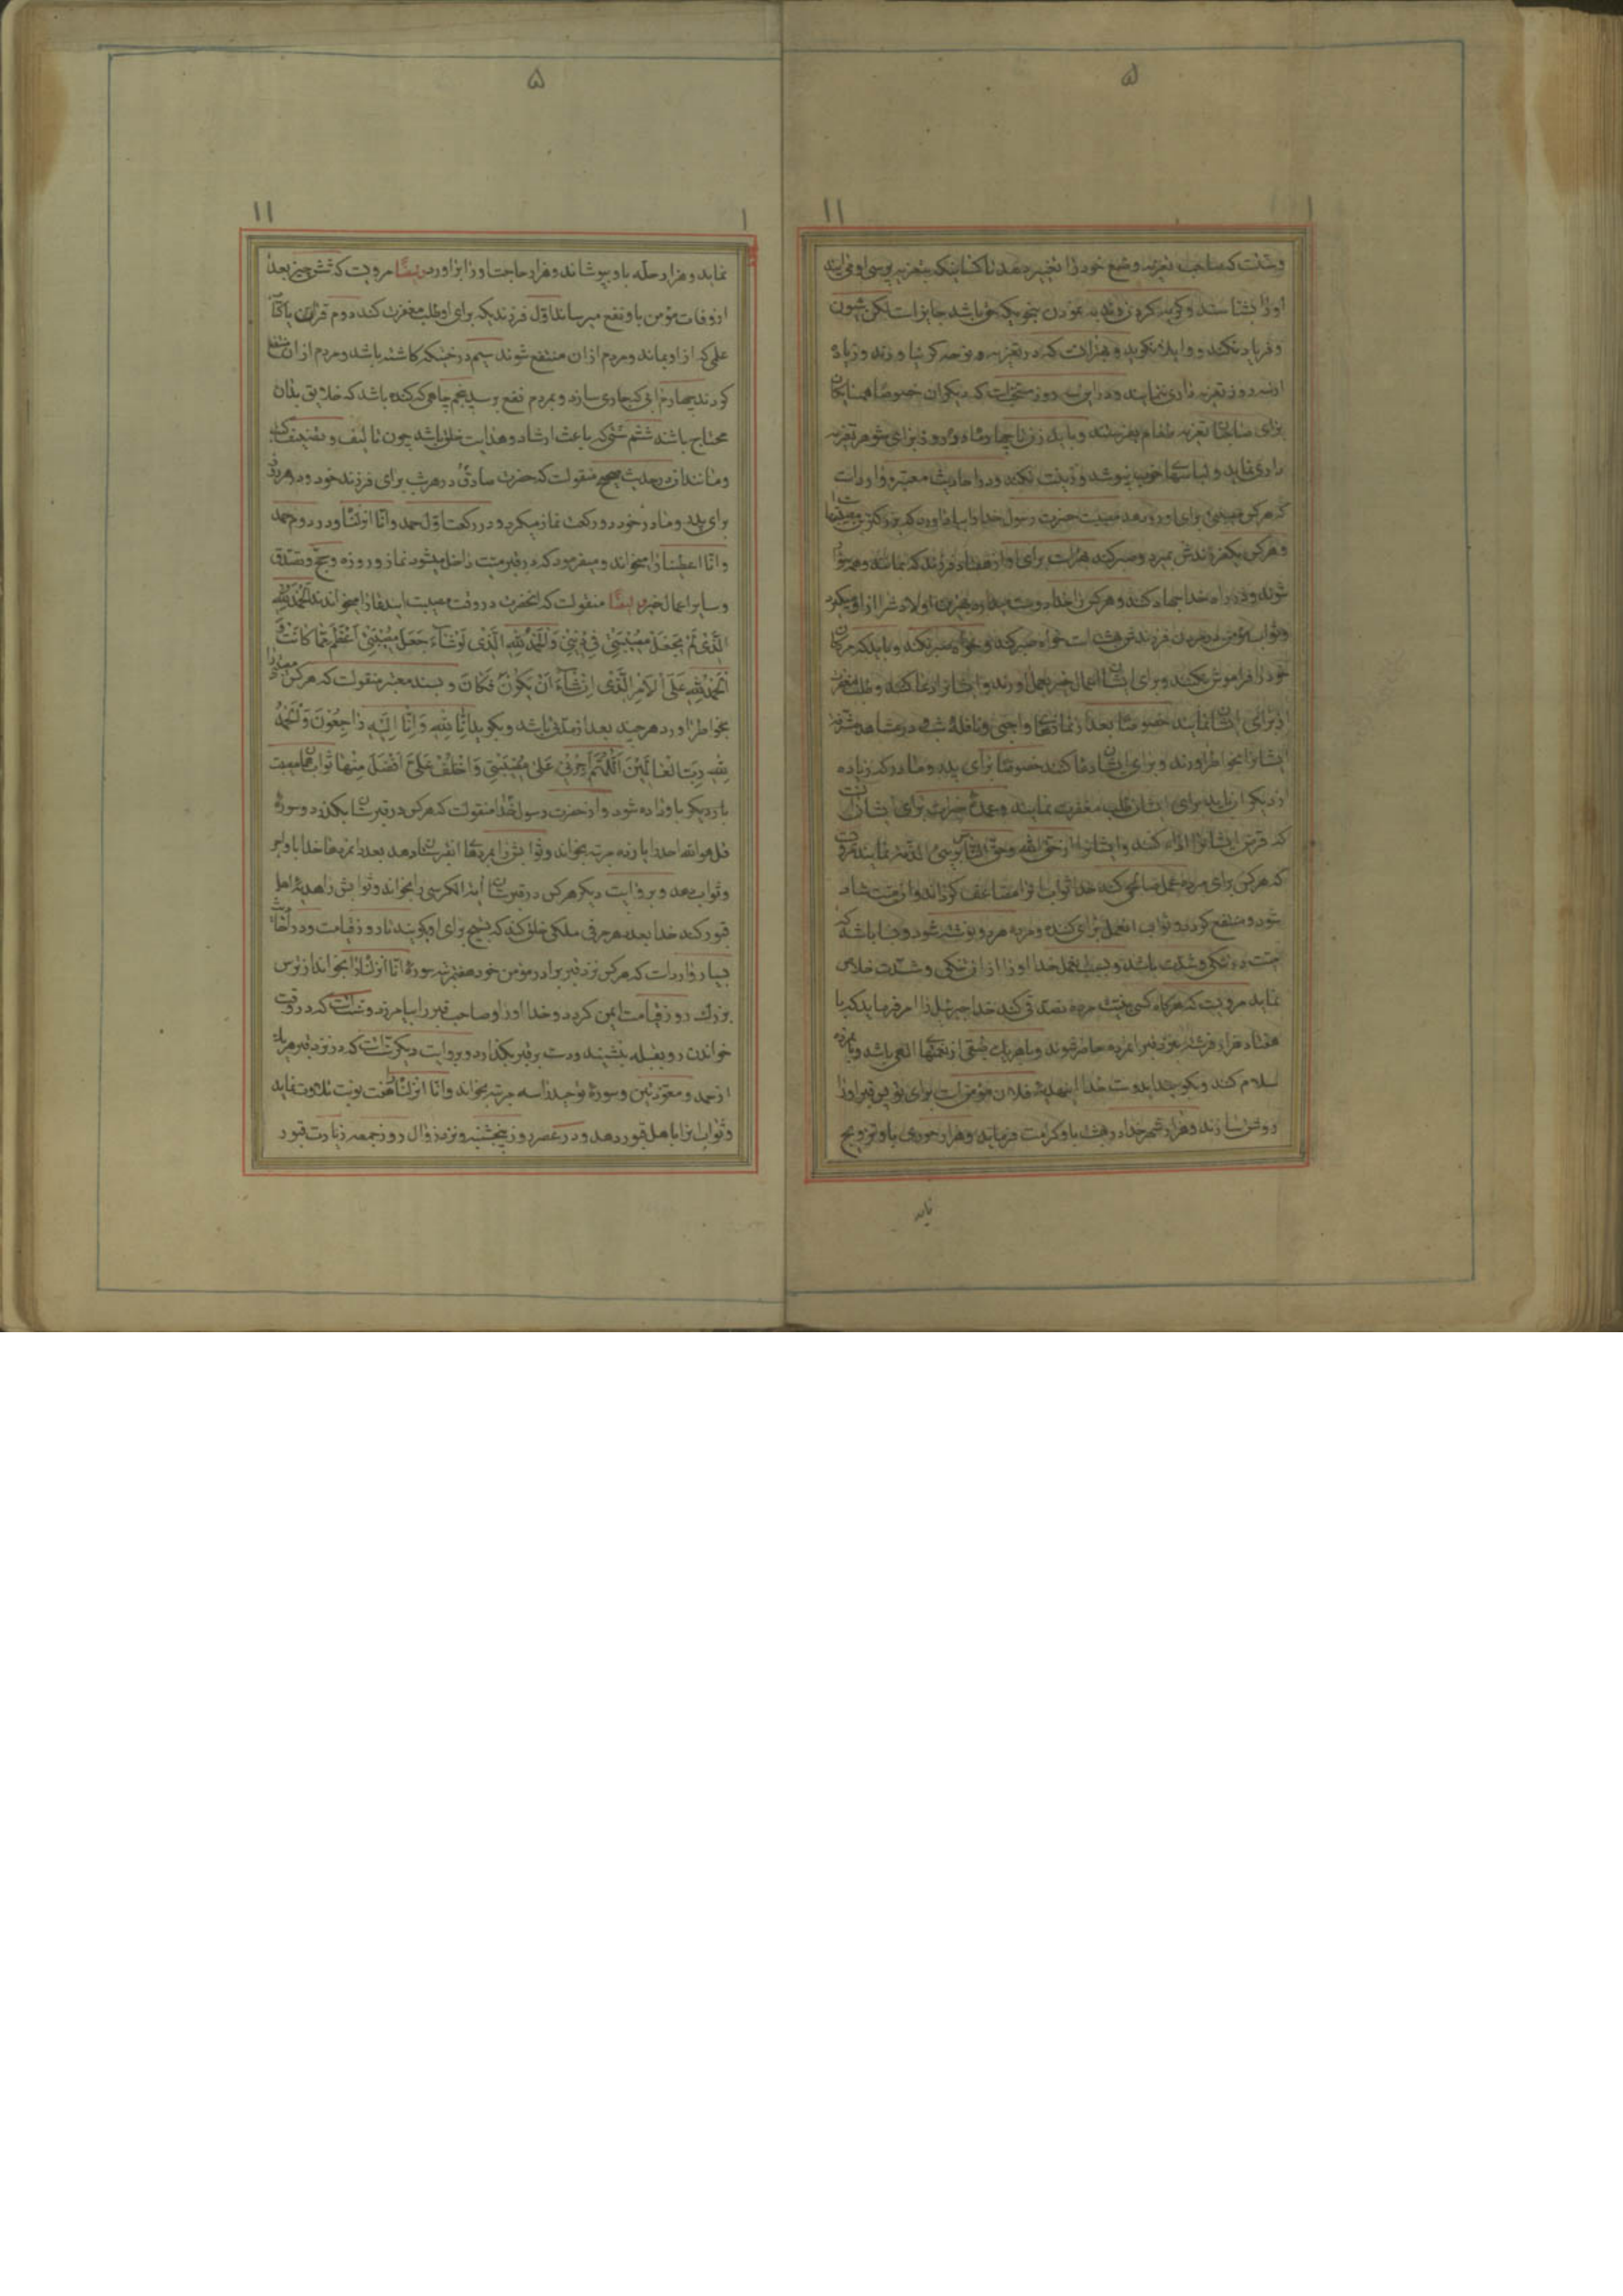 ۵
۱۱
۱
و سنت که صاحب تعزیه وضع خود را تغییر دهد تا کسانیکه بتعزیه پرسی او می‌ایند
او را بشناسند و کریه کردن و ندبه نمودن بنحویکه حق باشد جایز است لکن شیون
و فریاد نکنند و واویلا نکویند و بهتر انست که در تعزیه و نوحه کریبا و زند و زیاده
از سه روز تعزیه داری ننمایند و در این سه روز سنت است که دیکران خصوصا همسایکان
برای صاحبان تعزیه طعام بفرستند و باید زن تا چهار ماه و ده روز برای شوهر تعزیه
داری نماید و لباسهای خوب نپوشد و زینت نکند و در احادیث معتبره وارد است
که هر کس مصیبتی برای او رو دهد مصیبت حضرت رسول خدا را بیاد اورد که بزرکترین مصیبتها است
و هر کس یکفرزندش بمیرد و صبر کند بهتر است برای او از هفتاد فرزند که بمانند و همه سوار
شوند و در راه خدا جهاد کنند و هر کس را خدا دوست میدارد بهترین اولادش را از او میکیرد
و ثواب مؤمن در مردن فرزندش بهشت است خواه صبر کند و خواه صبر نکند و باید که مردکان
خود را فراموش نکنند و برای ایشان اعمال خیر بعمل اورند و ایشان را دعا کنند و طلب مغفرت
از برای ایشان نمایند خصوصا بعد از نمازهای واجبی و نافله شب و در مشاهد مشرفه
ایشان را بخواطر اورند و برای ایشان دعا کنند خصوصا برای پدر و مادر که زیاده
از دیکران باید برای ایشان طلب مغفرت نمایند و عمده خیرات برای ایشان انست
که قرض ایشان را ادا کنند و ایشان را از حق الله و حق الناس بری الذمه نمایند مرویست
که هر کس برای مرده عمل صالحی کند خدا ثواب او را مضاعف کرداند و ان میت شاد
شود و منتفع کردد و ثواب انعمل برای کننده و مرده هر دو نوشته شود و بسا باشد که
میت در تنکی و شدت باشد و بسبب انعمل خدا او را از ان تنکی و شدت خلاص
نماید مرویست که هر کاه کسی بنیت مرده تصدقی کند خدا جبرئیل را امر فرماید که با
هفتاد هزار فرشته بنزد قبر انمرده حاضر شوند و با هر یک طبقی از نعمتهای الهی باشد و بانمرده
سلام کند و بکوید ای دوست خدا اینهدیه فلان مؤمن است برای تو پس قبر او را
روشن سازند و هزار شهر خدا در بهشت باو کرامت فرماید و هزار حوری باو تزویج
نماید
۵
۱۱
۱
نماید و هزار حله باو بپوشاند و هزار حاجت او را براورد ایضا مرویست که شش چیز بعد
از وفات مؤمن باو نفع میرساند اول فرزندیکه برای او طلب مغفرت کند دوم قران یا کتاب
علمی که از او بماند و مردم از ان منتفع شوند سیم درختیکه کاشته باشد و مردم از ان منتفع
کردند چهارم ابی که جاری سازد و بمردم نفع برسد پنجم چاهی که کنده باشد که خلایق بدان
محتاج باشند ششم سنتی که باعث ارشاد و هدایت خلق باشد چون تالیف و تصنیف کتاب
و مانند ان در حدیث صحیح منقولست که حضرت صادق در هر شب برای فرزند خود و در هر روز
برای پدر و مادر خود دو رکعت نماز میکرد و در رکعت اول حمد و انا انزلنا و در دوم حمد
و انا اعطینا را میخواند و میفرمود که در قبر میت داخل میشود نماز و روزه و حج و تصدق
و سایر اعمال خیر و ایضا منقولست که انحضرت در وقت مصیبت ایندعا را میخواندند الحمد لله
الذی لم یجعل مصیبتی فی دینی و الحمد لله الذی لو شاء جعل مصیبتی اعظم مما کانت و
الحمد لله علی الامر الذی ان شاء ان یکون فکان و بسند معتبر منقولست که هر کس مصیبتی را
بخواطر اورد هر چند بعد از مدتی باشد و بکوید انا لله و انا الیه راجعون و الحمد
لله رب العالمین اللهم اجرنی علی مصیبتی و اخلف علی افضل منها ثواب همان مصیبت
بار دیکر باو داده شود و از حضرت رسول خدا منقولست که هر کس در قبرستان بکذرد و سوره
قل هو الله احد را یازده مرتبه بخواند و ثوابش را بمردهای انقبرستان دهد بعدد انمردها خدا باو اجر
و ثواب دهد و بروایت دیکر هر کس در قبرستان ایة الکرسی را بخواند و ثوابش را هدیه اهل
قبور کند خدا بعدد هر حرفی ملکی خلق کند که تسبیح برای او کویند تا روز قیامت و در احادیث
بسیار وارد است که هر کس نزد قبر برادر مؤمن خود هفتمرتبه سوره انا انزلناه را بخواند از ترس
بزرك روز قیامت ایمن کردد و خدا او را و صاحب قبر را بیامرزد و سنت است که در وقت
خواندن رو بقبله بنشیند و دست بر قبر بکذارد و بروایت دیکر سنت است که در نزد قبر هر یک
از حمد و معوذتین و سوره توحید را سه مرتبه بخواند و انا انزلناه هفت نوبت تلاوت نماید
و ثواب انرا باهل قبور دهد و در عصر روز پنجشنبه و نزد زوال روز جمعه زیارت قبور